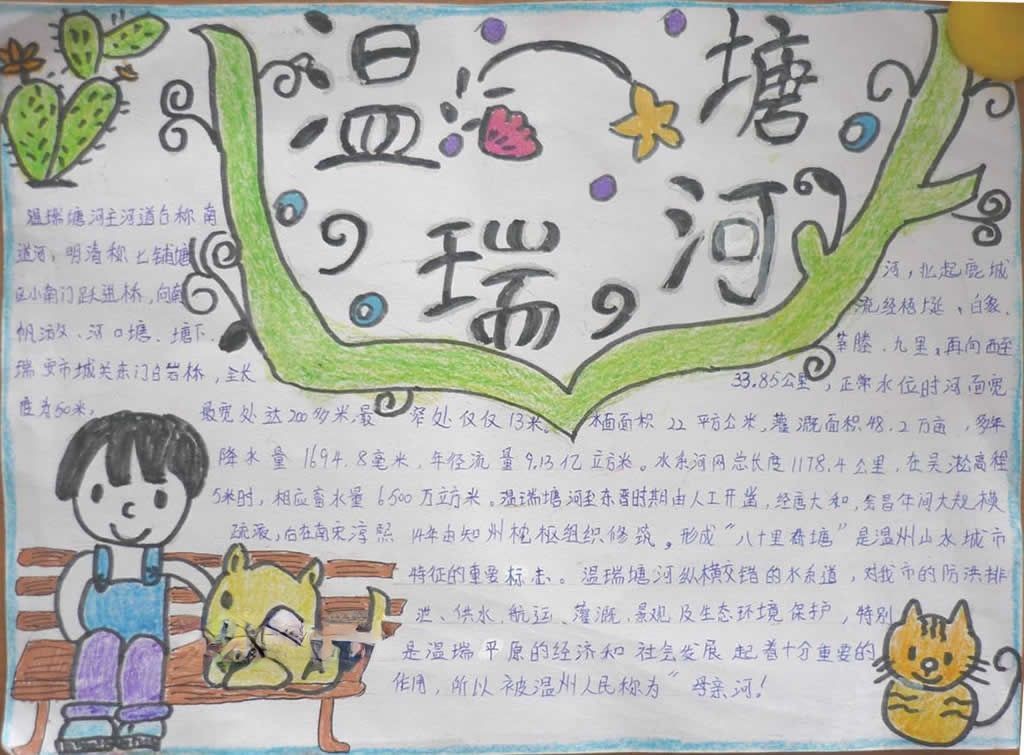 温 塘
瑞 河
温瑞塘河主河道古称南
道河,明清称七铺塘河,北起鹿城
区小南门跃进桥,向南流经梧埏、白象、
帆游、河口塘、塘下、莘塍、九里,再向西至
瑞安市城关东门白岩桥,全长33.85公里,正常水位时河面宽
度为50米,最宽处达200多米,最窄处仅仅13米。水面面积22平方公米,灌溉面积48.2万亩,多年
降水量1694.8毫米,年径流量9.13亿立方米。水系河网总长度1178.4公里,在吴淞高程
5米时,相应蓄水量6500万立方米。温瑞塘河至东晋时期由人工开凿,经唐大和,会昌年间大规模
疏浚,后在南宋淳熙14年由知州枢组织修筑。形成“八十里荷塘”是温州山水城市
特征的重要标志。温瑞塘河纵横交错的水系道,对我市的防洪排
泄、供水、航运、灌溉、景观及生态环境保护,特别
是温瑞平原的经济和社会发展起着十分重要的
作用,所以被温州人民称为“母亲河!